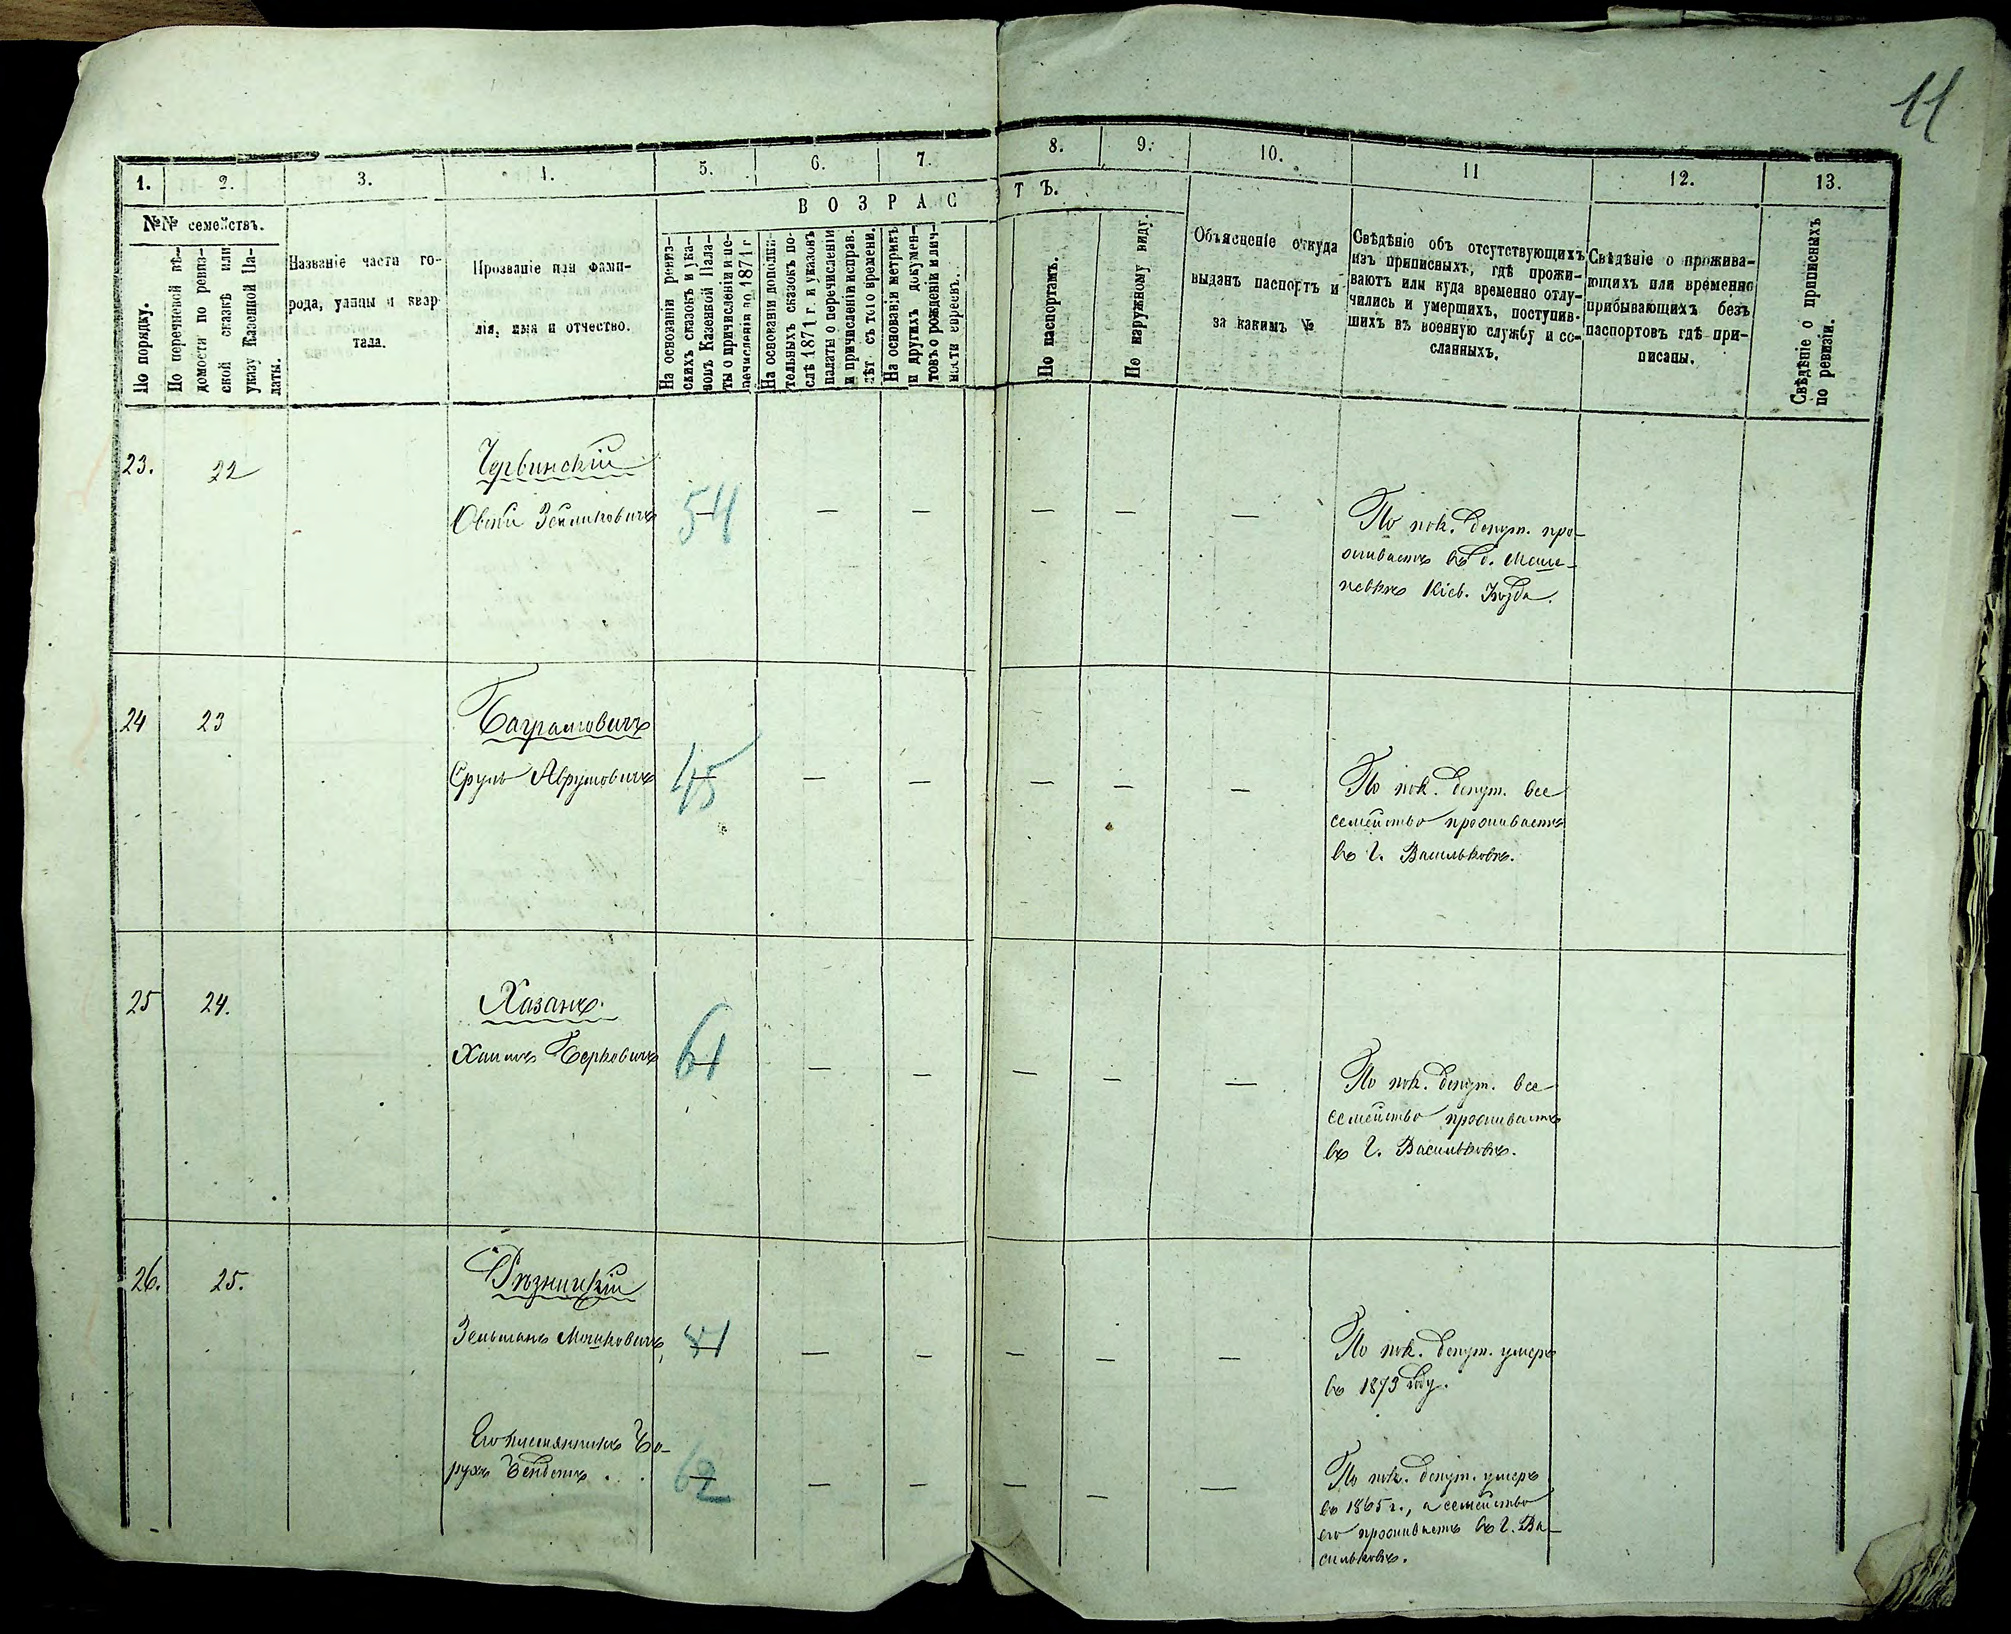 11
1. 2. 3. 4. 5. 6. 7. 8. 9. 10. 11 12. 13.
№№ семействъ.
В О З Р А С Т Ъ.
По порядку.
По перечневой вѣ-
домости по ревиз-
ской сказкѣ или
указу Казенной Па-
латы.
Названіе части го-
рода, улицы и квар-
тала.
Прозваніе или фами-
лія, имя и отчество.
На основаніи ревиз-
скихъ сказокъ и ука-
зовъ Казенной Пала-
ты о причисленіи и пе-
речисленіи до 1871 г
На основаніи дополни-
тельныхъ сказокъ по-
слѣ 1871 г. и указовъ
палаты о перечисленіи
и причисленіи исправ.
лѣт. съ того времени.
На основаніи метрикъ
и другихъ докумен-
товъ о рожденіи и лич-
ности евреевъ.
По паспортамъ.
По наружному виду.
Объясненіе откуда
выданъ паспортъ и
за какимъ №
Свѣдѣніе объ отсутствующихъ
изъ приписныхъ, гдѣ прожи-
ваютъ или куда временно отлу-
чились и умершихъ, поступив-
шихъ въ военную службу и со-
сланныхъ.
Свѣдѣніе о прожива-
ющихъ или временно
прибывающихъ безъ
паспортовъ гдѣ при-
писаны.
Свѣдѣніе о приписныхъ
по ревизіи.
23. 22 Червинскій
Овсій Зейликовичъ 54 — — — — —
По пок. депут. про-
живаетъ въ д.
Кіев. Уѣзда.
24 23 Баграмовичъ
Сруль Аврумовичъ 45 — — — — —
По пок. депут. все
семейство проживаетъ
въ г. Васильковѣ.
25 24. Хазанъ.
Хаимъ Берковичъ 61 — — — — —
По пок. депут. все
семейство проживаетъ
въ г. Васильковѣ.
26. 25. Рѣзницкій
Зельманъ Мошковичъ 81 — — — — —
По пок. депут. умеръ
въ 1873 году.
Его племянникъ Бо-
рухъ Бендетъ . . 62 — — — — —
По пок. депут. умеръ
въ 1865 г., а семейство
его проживаетъ въ г. Ва-
сильковѣ.